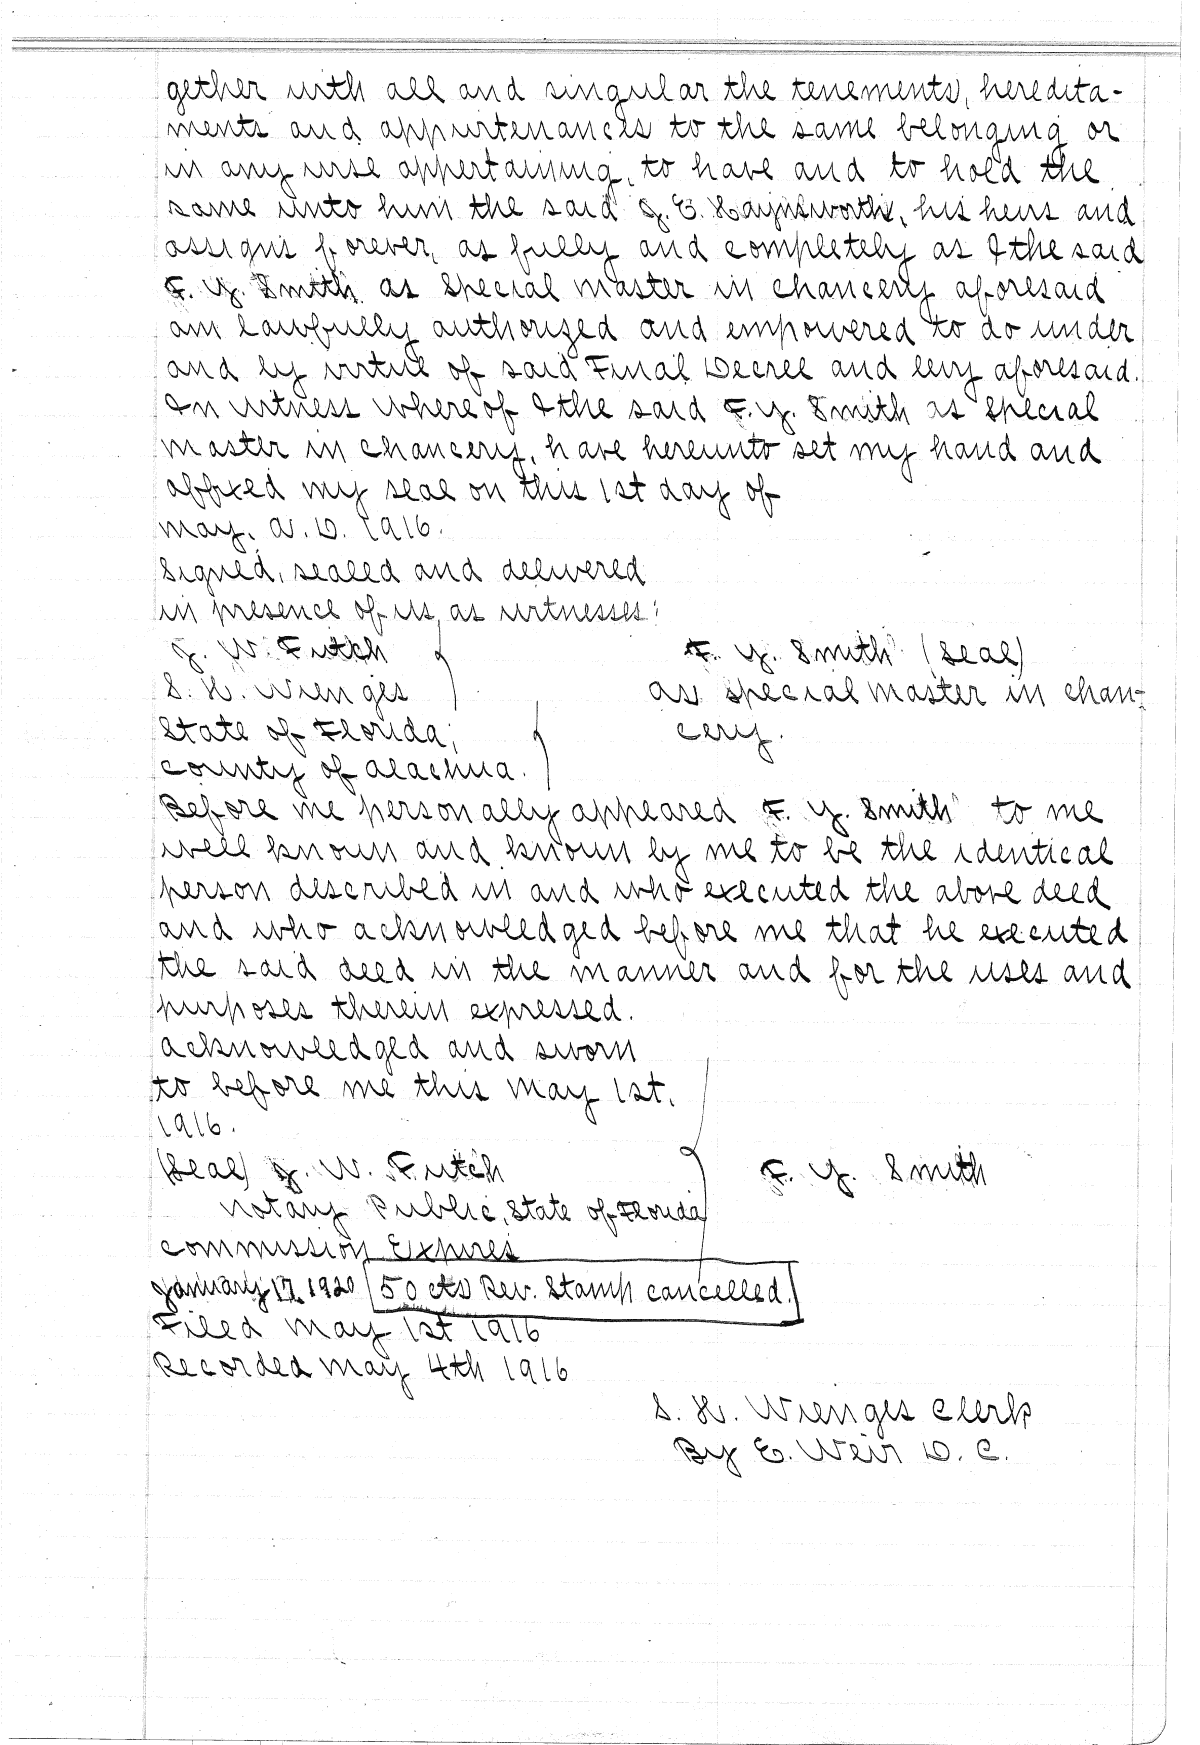 gether with all and singular the tenements, heredita-
ments and appurtenances to the same belonging or
in any wise appertaining, to have and to hold the
same unto him the said J. E. Haynsworth, his heirs and
assigns forever, as fully and completely as I the said
F. Y. Smith as Special master in chancery aforesaid
am lawfully authorized and empowered to do under
and by virtue of said Final Decree and levy aforesaid.
In witness whereof I the said F. Y. Smith as Special
master in chancery, have hereunto set my hand and
affixed my seal on this 1st day of
may. A. D. 1916.
Signed, sealed and delivered
in presence of us, as witnesses:
J. W. Futch F. Y. Smith (Seal)
S. H. Wienges as special master in chan-
State of Florida, cery.
County of Alachua.
Before me personally appeared F. Y. Smith to me
well known and known by me to be the identical
person described in and who executed the above deed
and who acknowledged before me that he executed
the said deed in the manner and for the uses and
purposes therein expressed.
acknowledged and sworn
to before me this May 1st.
1916.
(Seal) J. W. Futch F. Y. Smith
Notary Public, State of Florida
Commission Expires
January 17, 1920 50 cts Rev. Stamp cancelled.
Filed may 1st 1916
Recorded may 4th 1916
S. H. Wienges Clerk
By E. Weir D. C.